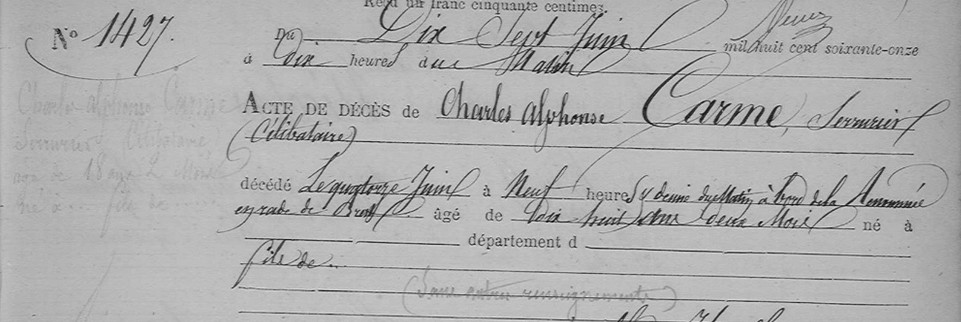 Rend un franc cinquante centimes.
N° 1427.
Du Dix Sept Juin mil huit cent soixante-onze
à Dix heures du Matin
ACTE DE DÉCÈS de Charles Alphonse Carme, Serrurier
(Célibataire)
décédé Le quatorze Juin à Neuf heures & demie du Matin à bord de la Renommée
en rade de Brest âgé de Dix huit ans deux Mois né à
département d
fils de
(Sans autres renseignements)
Charles Alphonse Carme
Serrurier Célibataire
âgé de 18 ans 2 Mois
né à .. fils de